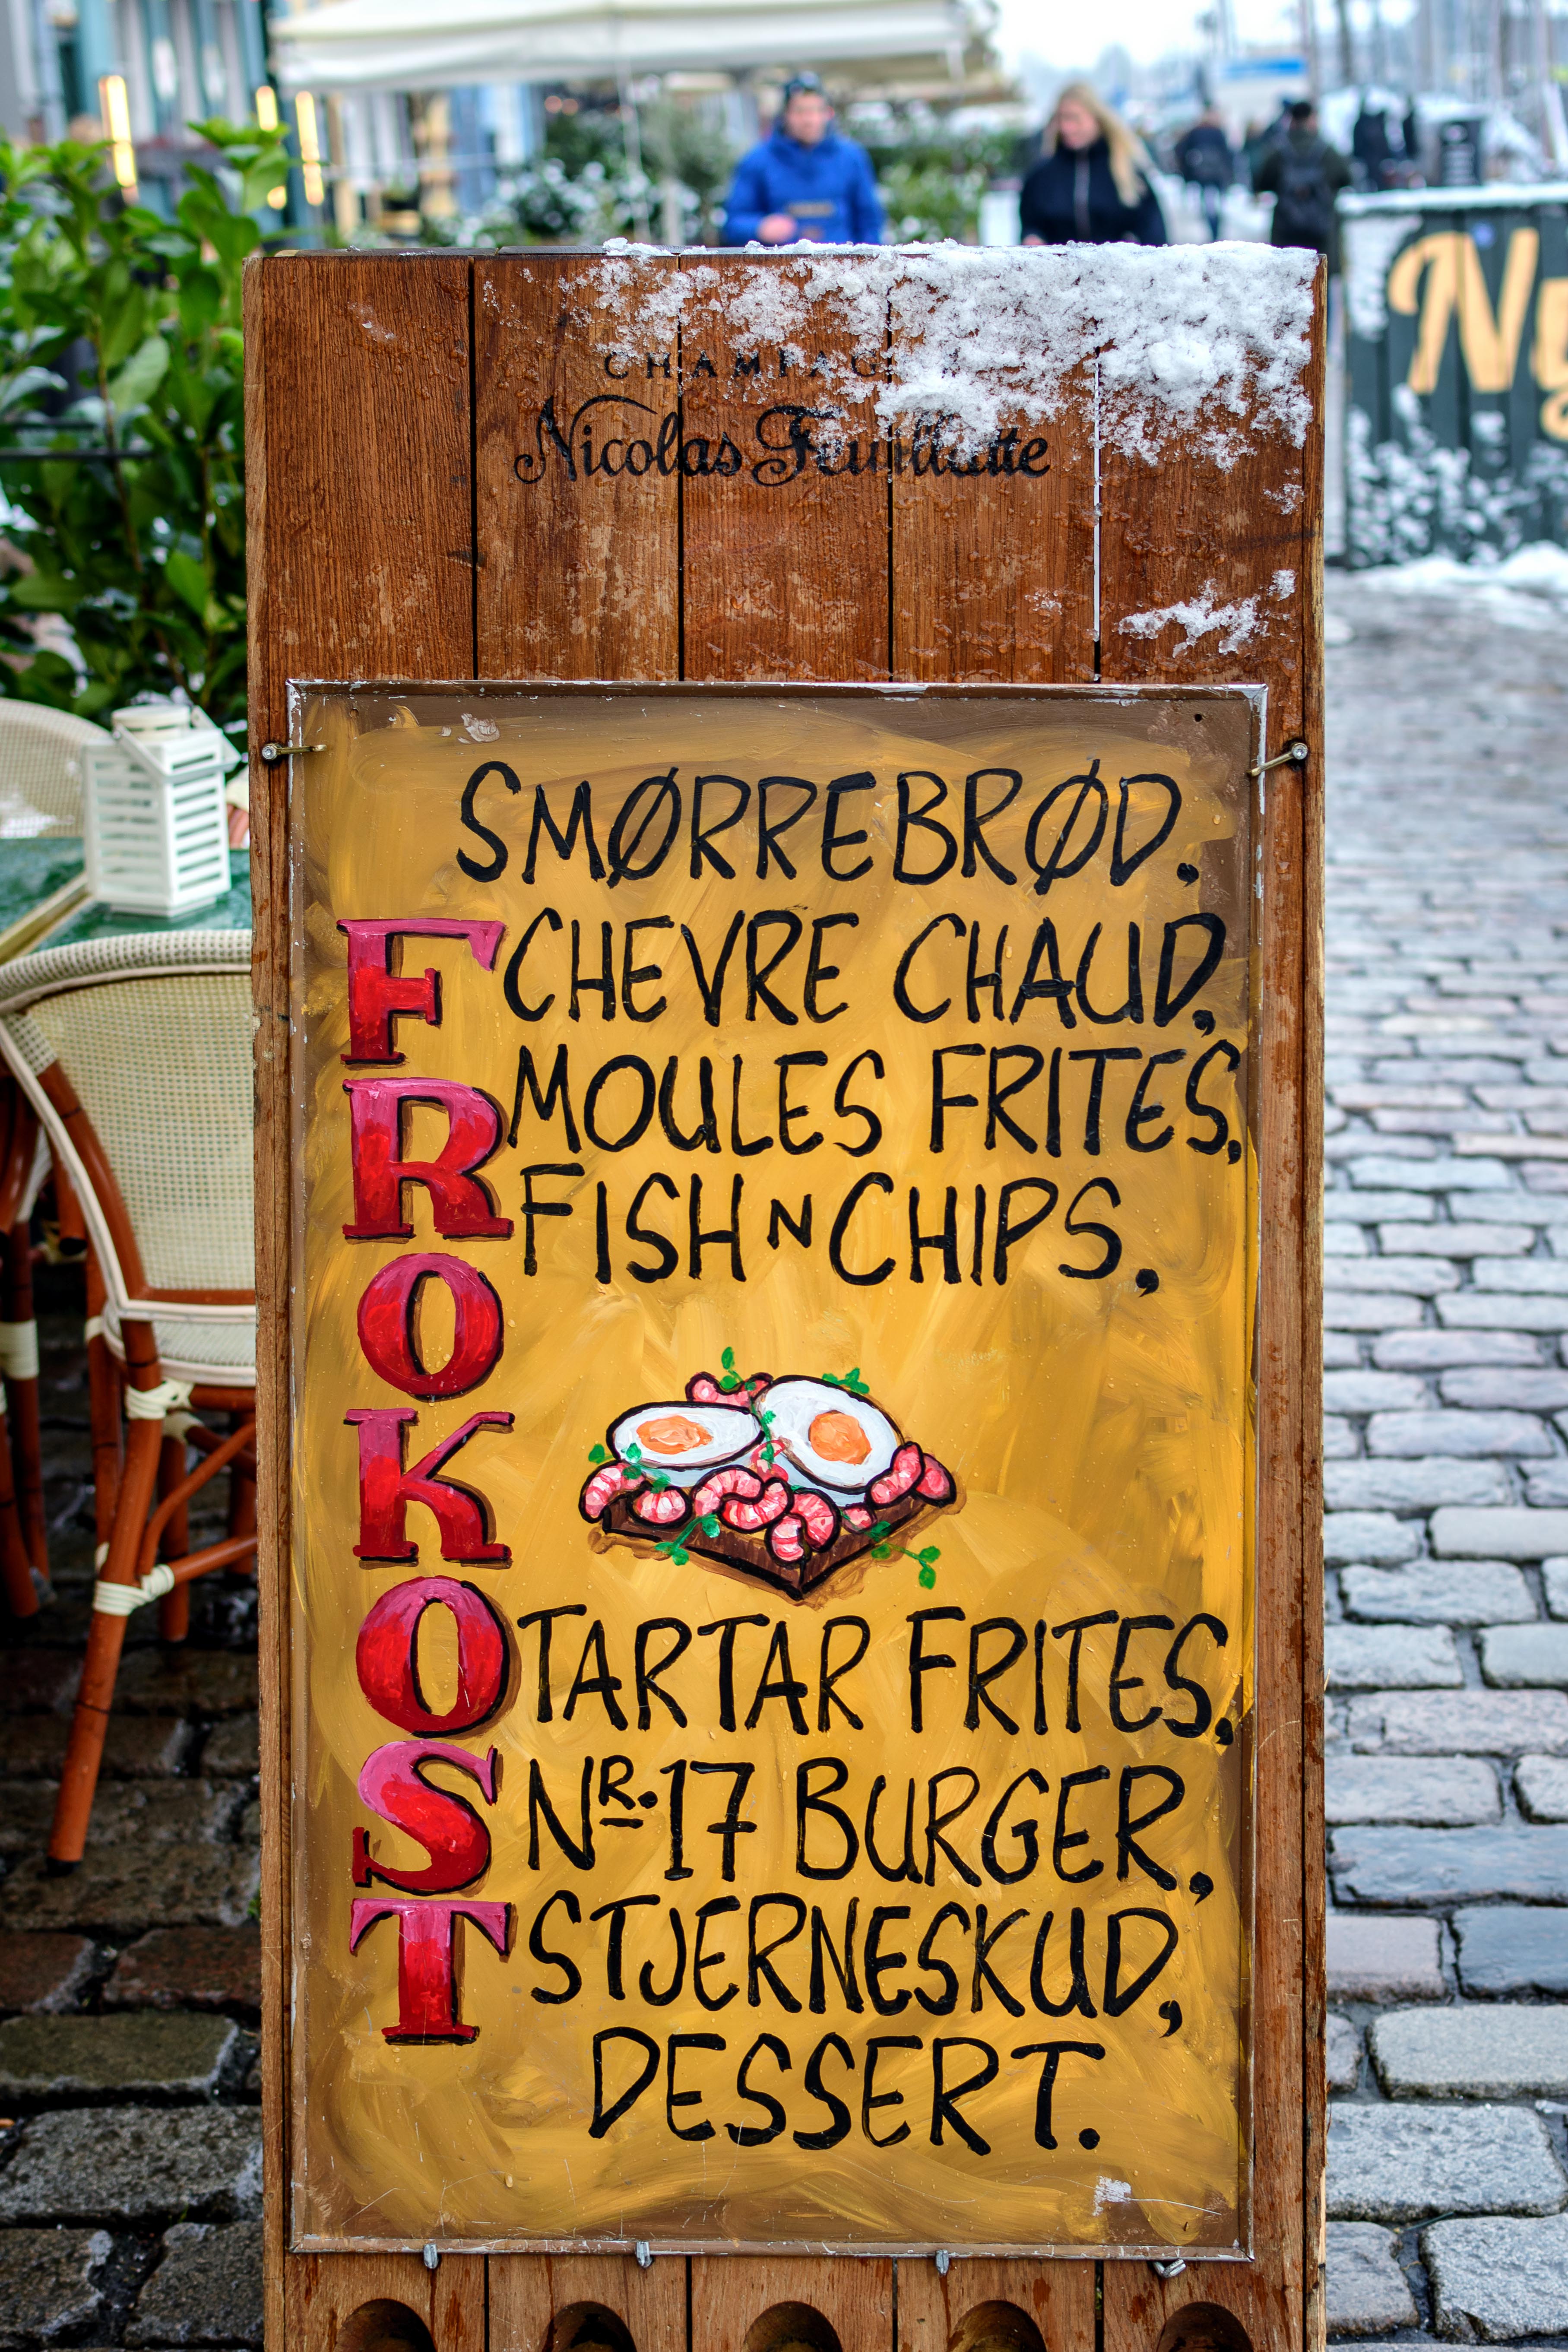 CHAMPAGNE
Nicolas Feuillatte
Ny
SMØRREBRØD.
FROKOST
CHEVRE CHAUD,
MOULES FRITES,
FISH N CHIPS,
TARTAR FRITES,
NR. 17 BURGER,
STJERNESKUD,
DESSERT.